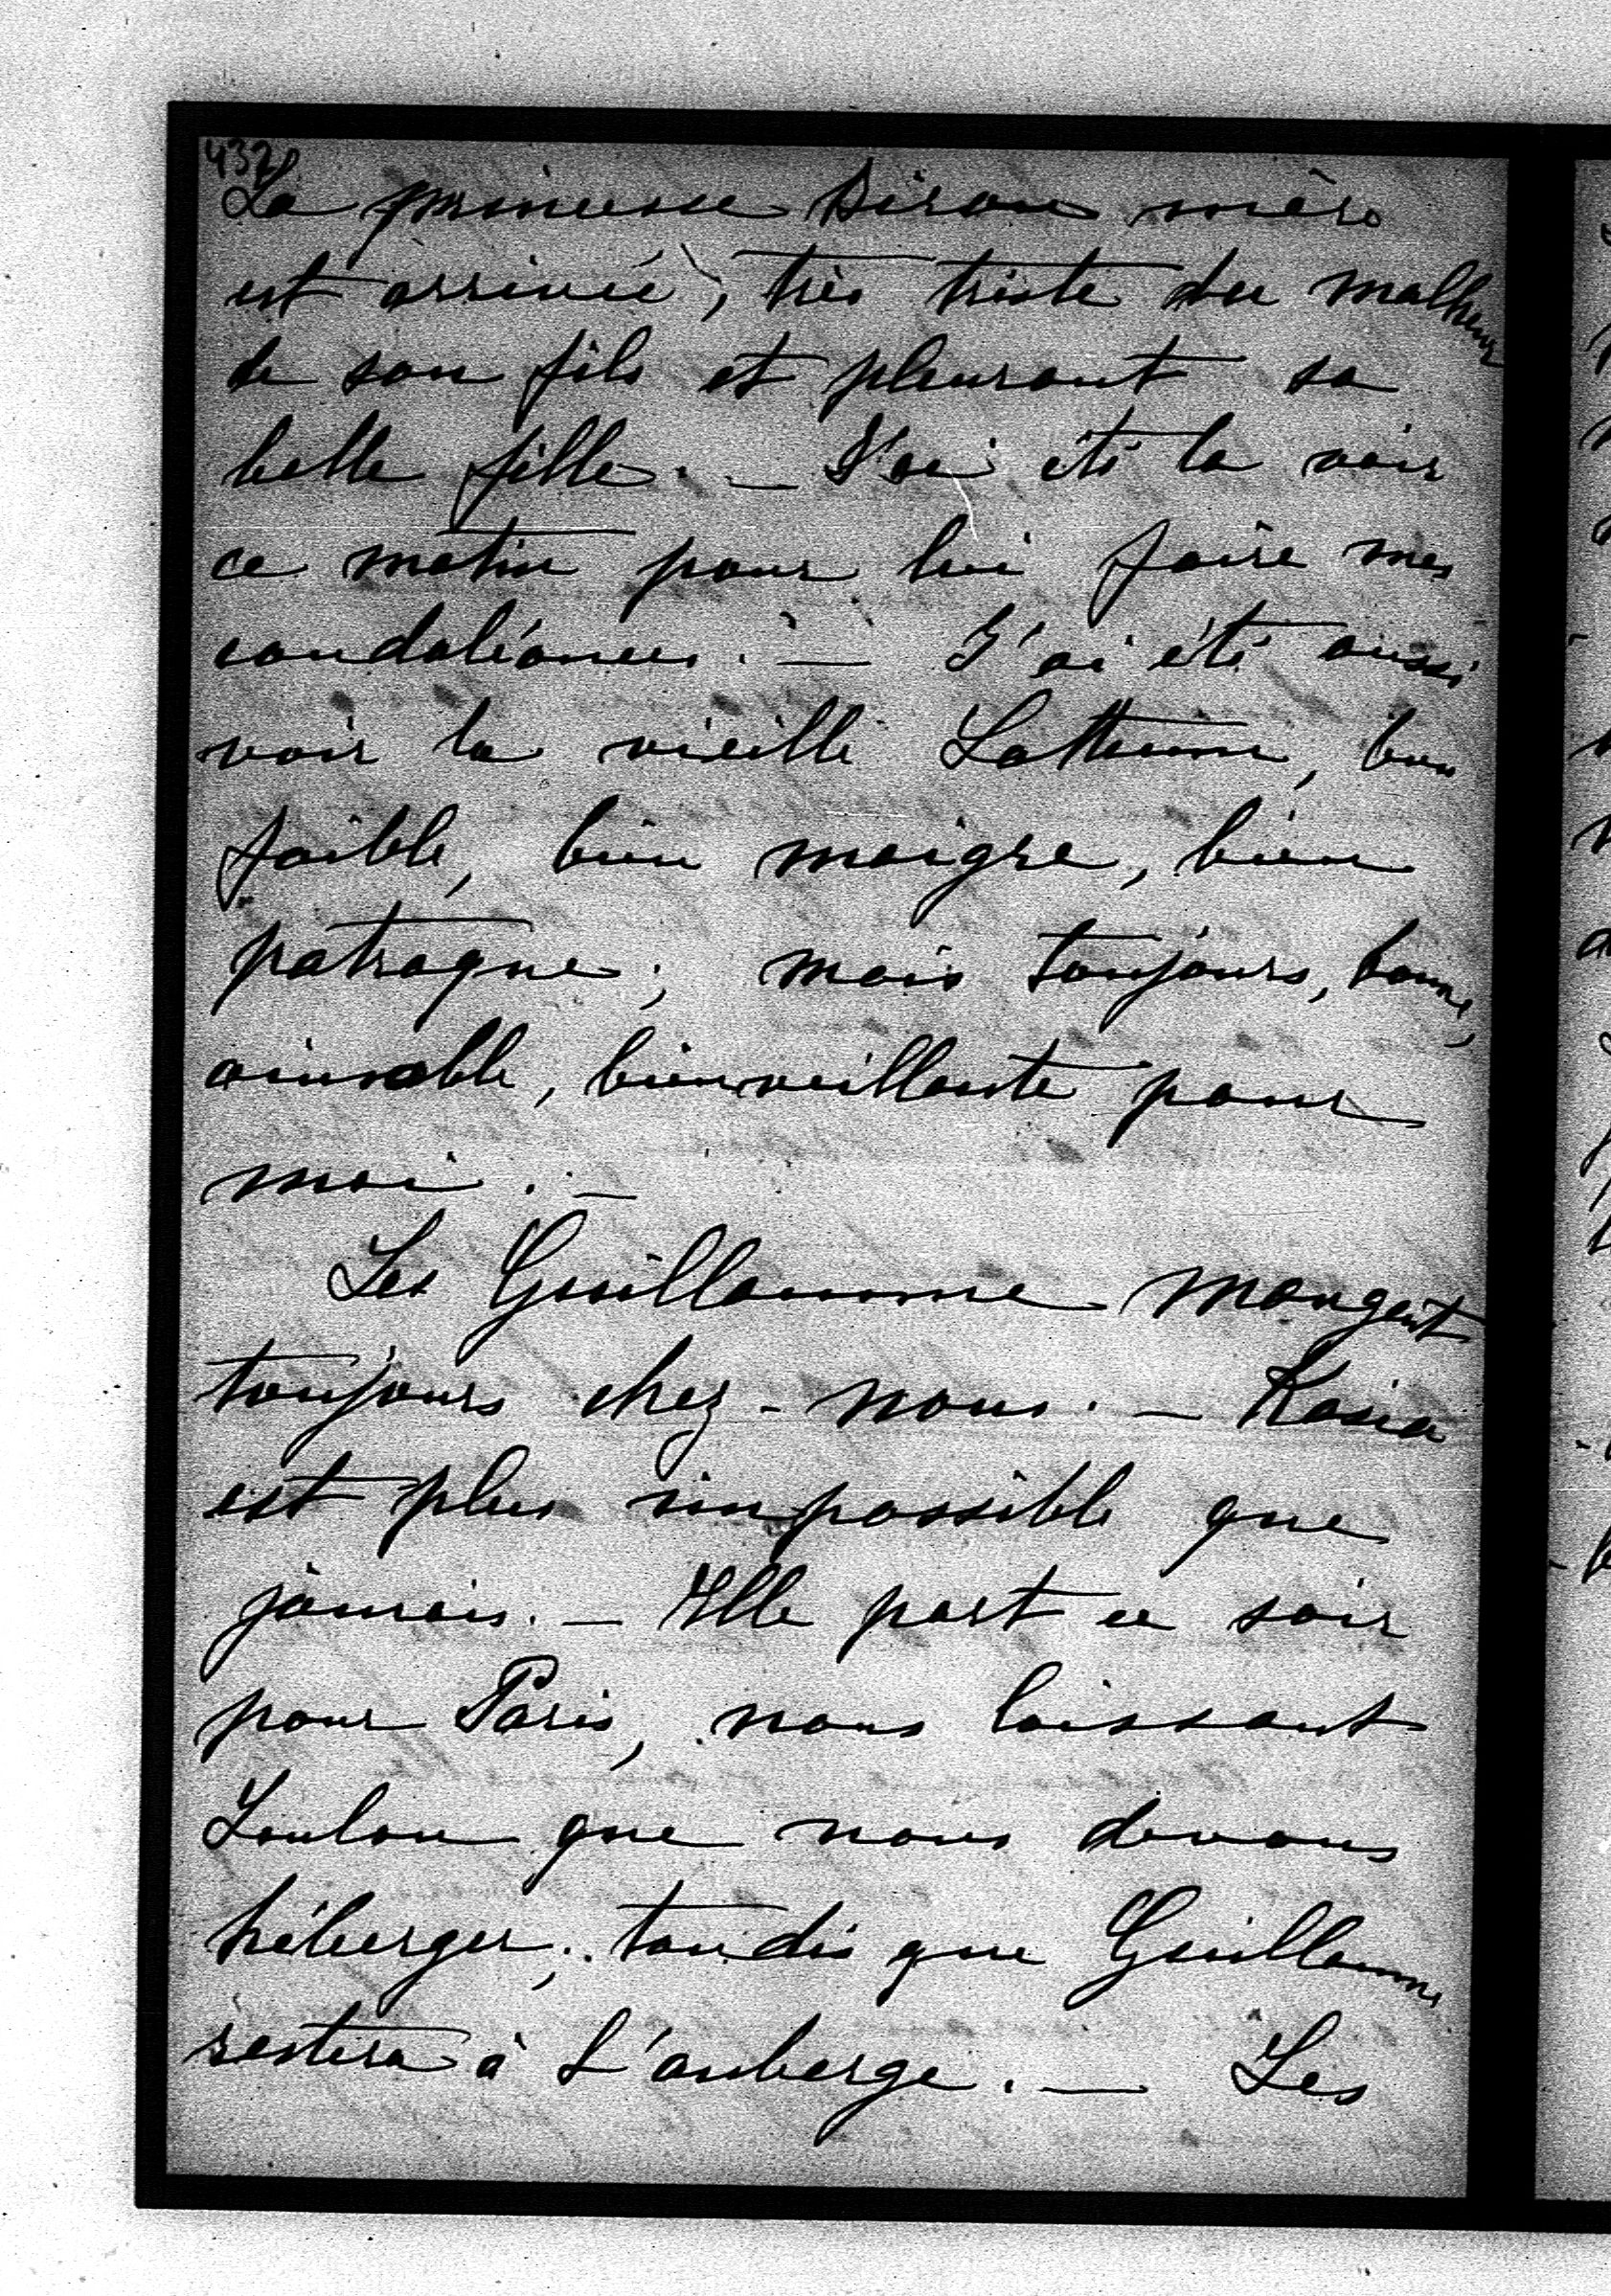 432
La princesse Biron mère
est arrivée, très triste du malheur
de son fils et pleurant sa
belle fille. — J'ai été la voir
ce matin pour lui faire mes
condoléances. — J'ai été aussi
voir la vieille Lottum, bien
faible, bien maigre, bien
patraque; mais toujours, bonne,
aimable, bienveillante pour
moi. —
Les Guillaume mangent
toujours chez-nous. — Kasia
est plus impossible que
jamais. — Elle part ce soir
pour Paris, nous laissant
Loulou que nous devons
héberger; tandis que Guillaume
restera à l'auberge. — Les